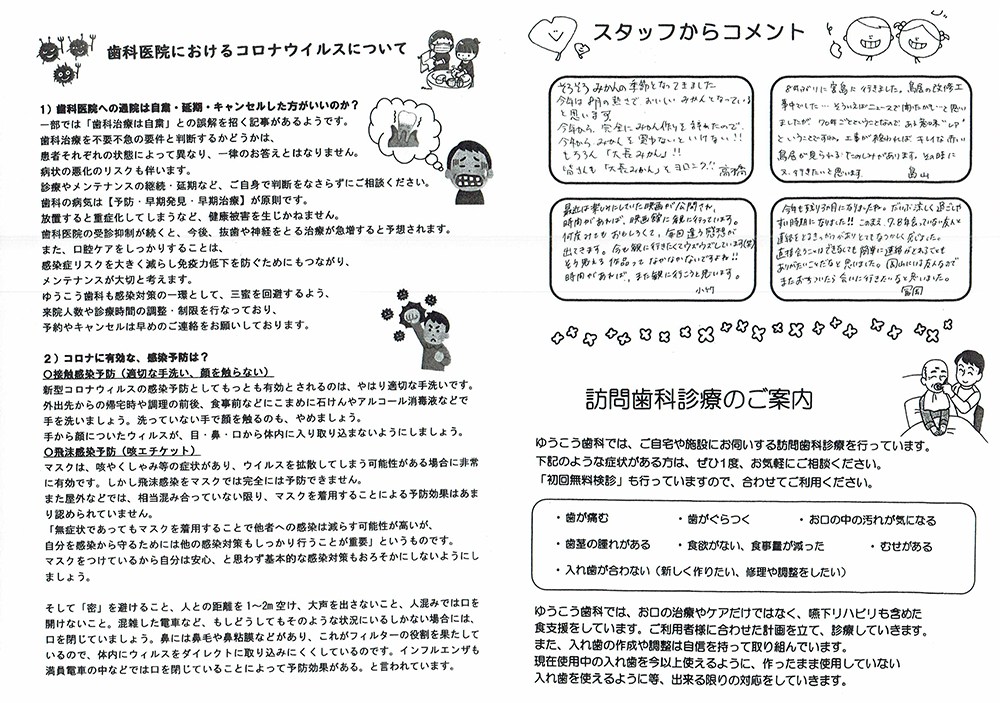 歯科医院におけるコロナウイルスについて
1）歯科医院への通院は自粛・延期・キャンセルした方がいいのか？
一部では「歯科治療は自粛」との誤解を招く記事があるようです。
歯科治療を不要不急の要件と判断するかどうかは、
患者それぞれの状態によって異なり、一律のお答えとはなりません。
病状の悪化のリスクも伴います。
診療やメンテナンスの継続・延期など、ご自身で判断をなさらずにご相談ください。
歯科の病気は【予防・早期発見・早期治療】が原則です。
放置すると重症化してしまうなど、健康被害を生じかねません。
歯科医院の受診抑制が続くと、今後、抜歯や神経をとる治療が急増すると予想されます。
また、口腔ケアをしっかりすることは、
感染症リスクを大きく減らし免疫力低下を防ぐためにもつながり、
メンテナンスが大切と考えます。
ゆうこう歯科も感染対策の一環として、三蜜を回避するよう、
来院人数や診療時間の調整・制限を行なっており、
予約やキャンセルは早めのご連絡をお願いしております。
2）コロナに有効な、感染予防は？
〇接触感染予防（適切な手洗い、顔を触らない）
新型コロナウィルスの感染予防としてもっとも有効とされるのは、やはり適切な手洗いです。
外出先からの帰宅時や調理の前後、食事前などにこまめに石けんやアルコール消毒液などで
手を洗いましょう。洗っていない手で顔を触るのも、やめましょう。
手から顔についたウィルスが、目・鼻・口から体内に入り取り込まないようにしましょう。
〇飛沫感染予防（咳エチケット）
マスクは、咳やくしゃみ等の症状があり、ウイルスを拡散してしまう可能性がある場合に非常
に有効です。しかし飛沫感染をマスクでは完全には予防できません。
また屋外などでは、相当混み合っていない限り、マスクを着用することによる予防効果はあま
り認められていません。
「無症状であってもマスクを着用することで他者への感染は減らす可能性が高いが、
自分を感染から守るためには他の感染対策もしっかり行うことが重要」というものです。
マスクをつけているから自分は安心、と思わず基本的な感染対策もおろそかにしないようにし
ましょう。
そして「密」を避けること、人との距離を1～2m空け、大声を出さないこと、人混みでは口を
開けないこと。混雑した電車など、もしどうしてもそのような状況にいるしかない場合には、
口を閉じていましょう。鼻には鼻毛や鼻粘膜などがあり、これがフィルターの役割を果たして
いるので、体内にウィルスをダイレクトに取り込みにくくしているのです。インフルエンザも
満員電車の中などでは口を閉じていることによって予防効果がある。と言われています。
スタッフからコメント
そろそろみかんの季節となってきました
今年は8月の熱さで、おいしいみかんとなっている
と思います
今年から、完全にみかん作りを辞めたので、
今年から、みかんを買わないといけない!!
もちろん「大長みかん」!!
皆さんも「大長みかん」をヨロシク!! 高橋
8月ぶりに宮島に行きました。鳥居の改修工
事中でした…そういえばニュースで聞いたかも…と思い
ましたが、70年ごとということなので、ある意味"レア"
ということですね。工事が終われば、キレイな赤い
鳥居が見られるたのしみがあります。その時に
又、行きたいと思います。 畠山
最近は楽しみにしていた映画が公開され、
時間があれば、映画館に観に行っています。
何度みてもおもしろくて、毎回違う感想が
出てきます。今も観に行きたくてウズウズしています(笑)
そう思える作品ってなかなかないですよね!!
時間があれば、また観に行こうと思います。
小竹
今年も残り3か月になりましたね。だいぶ涼しく過ごしや
すい時期になりました!! このまえ、7.8年会っていない友人と
連絡をとるきっかけがありとてもなつかしく感じました。
直接会うことはできなくても簡単に連絡がとれるとても
ありがたいことだなと思いました。岡山にいる友人なので
またおちついたら会いに行きたいなと思いました。
冨岡
訪問歯科診療のご案内
ゆうこう歯科では、ご自宅や施設にお伺いする訪問歯科診療を行っています。
下記のような症状がある方は、ぜひ1度、お気軽にご相談ください。
「初回無料検診」も行っていますので、合わせてご利用ください。
・歯が痛む ・歯がぐらつく ・お口の中の汚れが気になる
・歯茎の腫れがある ・食欲がない、食事量が減った ・むせがある
・入れ歯が合わない（新しく作りたい、修理や調整をしたい）
ゆうこう歯科では、お口の治療やケアだけではなく、嚥下リハビリも含めた
食支援をしています。ご利用者様に合わせた計画を立て、診療していきます。
また、入れ歯の作成や調整は自信を持って取り組んでいます。
現在使用中の入れ歯を今以上使えるように、作ったまま使用していない
入れ歯を使えるように等、出来る限りの対応をしていきます。